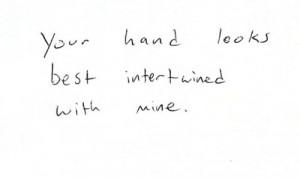 Your hand looks
best intertwined
with mine.